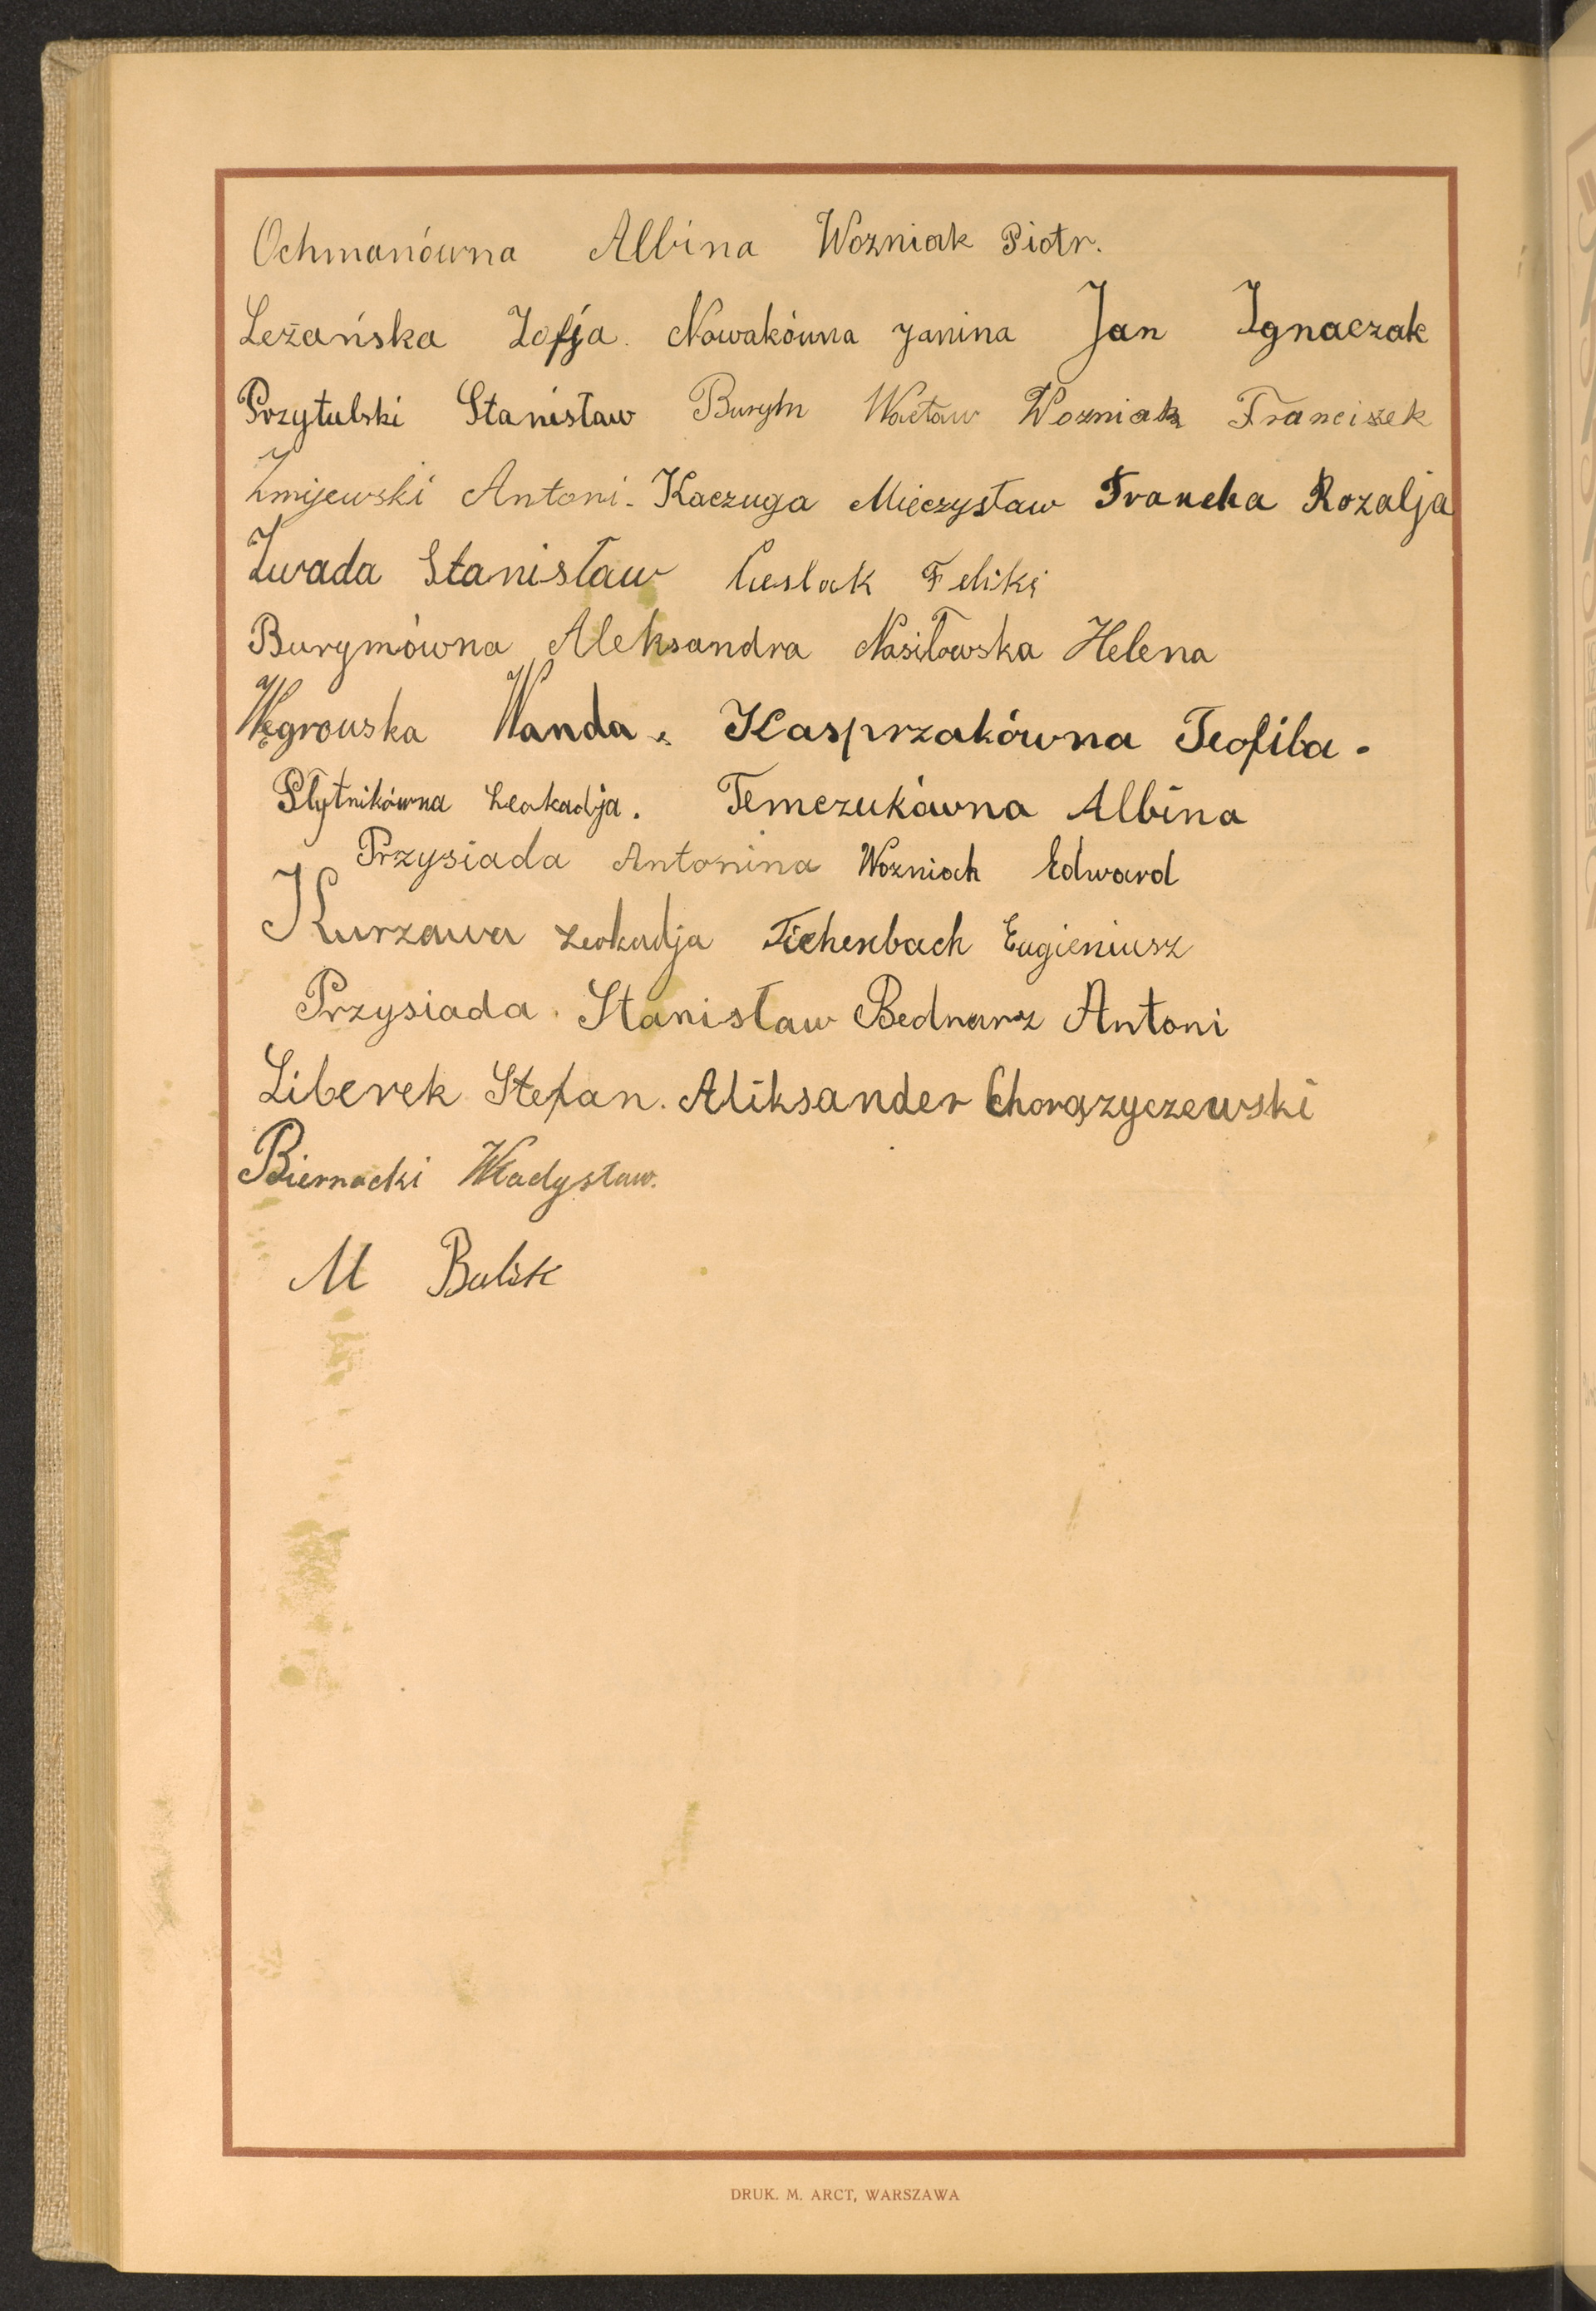 Ochmanówna Albina Wozniak Piotr.
Leżańska Zofja. Nowakówna Janina Jan Ignaczak
Przytulski Stanisław Burym Wacław Wozniak Franciszek
Żmijewski Antoni. Kaczuga Mięczysław Francka Rozalja
Zwada Stanisław Cieslak Feliks
Burymówna Aleksandra Nasiłowska Helena
Węgrowska Wanda. Kasprzakówna Teofila.
Płytnikówna Leokadja. Temczukówna Albina
Przysiada Antonina Wozniack Edward
Kurzawa Leokadja Fichenbach Eugieniusz
Przysiada Stanisław Bednarz Antoni
Liberek Stefan. Aliksander Chorązyczewski
Biernacki Władysław.
M Bulik
DRUK. M. ARCT, WARSZAWA